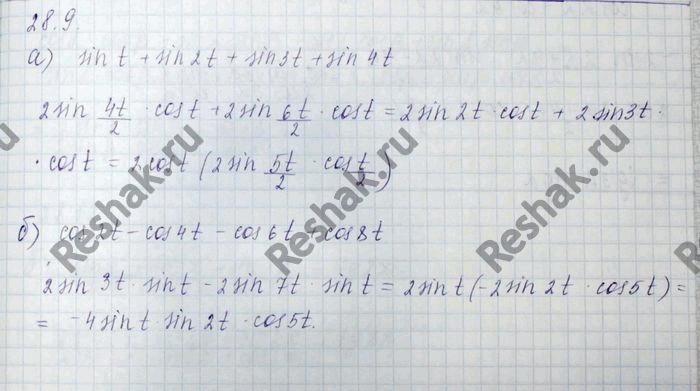 28.9.
а) sin t + sin 2t + sin 3t + sin 4t
2 sin 4t/2 · cos t + 2 sin 6t/2 · cos t = 2 sin 2t · cos t + 2 sin 3t ·
· cos t = 2 cos t (2 sin 5t/2 · cos t/2)
б) cos 2t - cos 4t - cos 6t + cos 8t
2 sin 3t · sin t - 2 sin 7t · sin t = 2 sin t (-2 sin 2t · cos 5t) =
= -4 sin t · sin 2t · cos 5t.
Reshak.ru
Reshak.ru
Reshak.ru
Reshak.ru